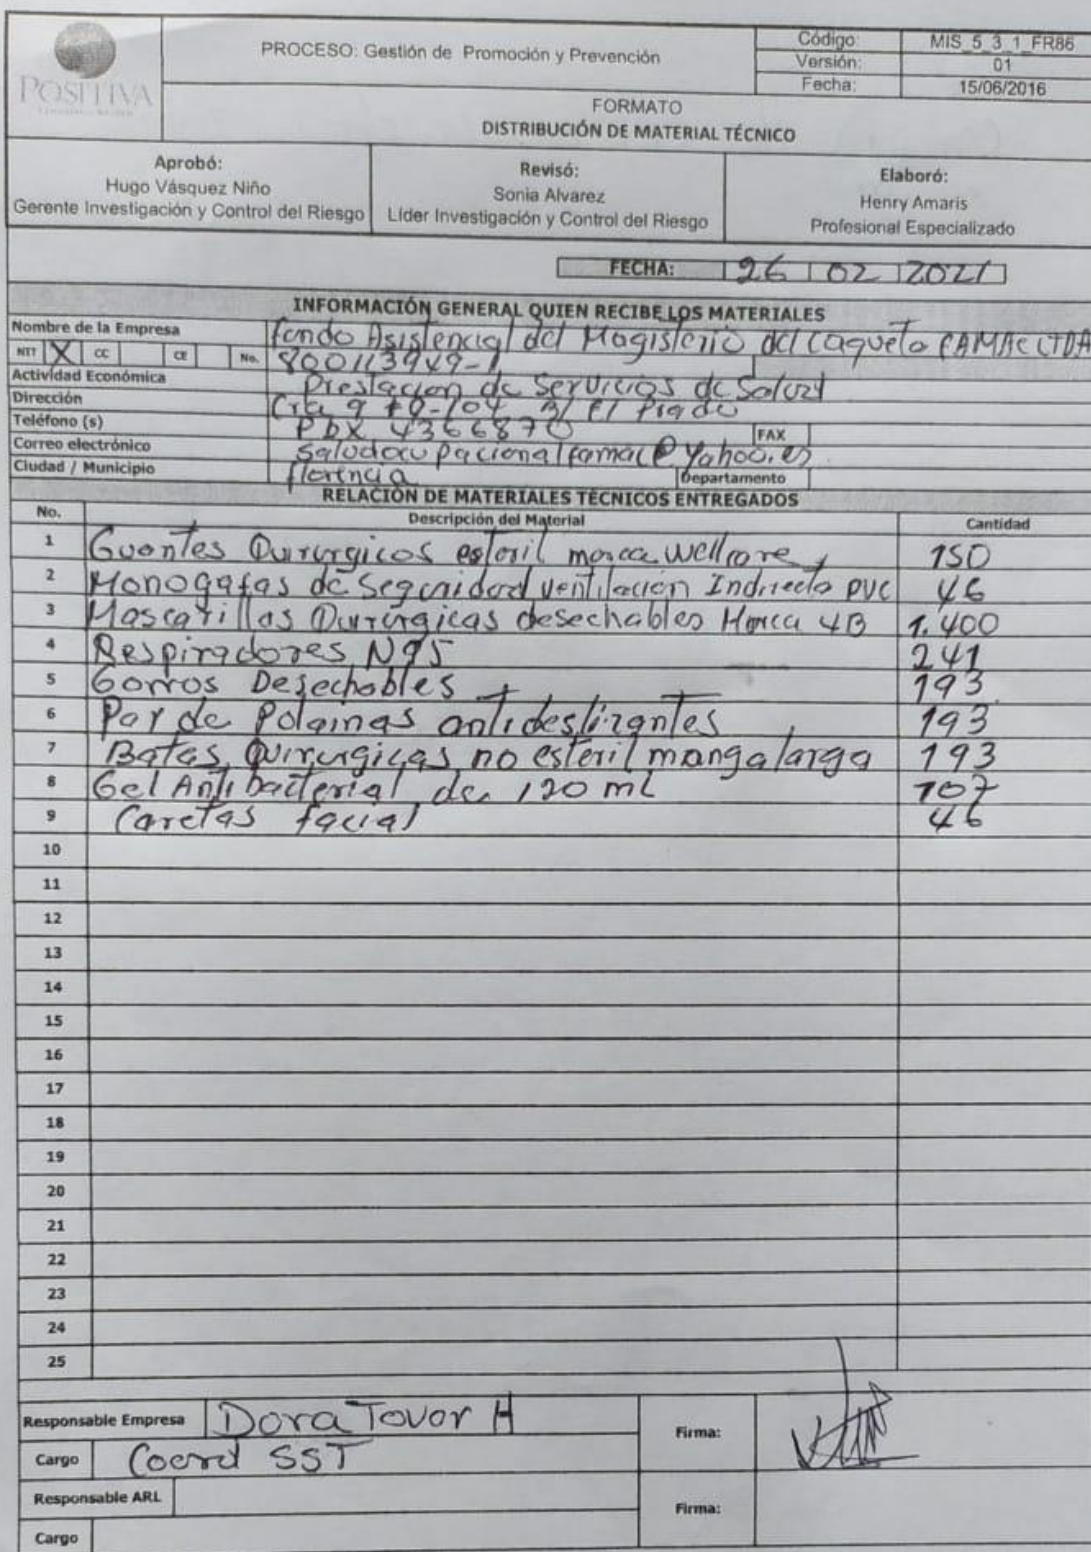 POSITIVA
PROCESO: Gestión de Promoción y Prevención
Código: MIS_5_3_1_FR86
Versión: 01
Fecha: 15/06/2016
FORMATO
DISTRIBUCIÓN DE MATERIAL TÉCNICO
Aprobó:
Hugo Vásquez Niño
Gerente Investigación y Control del Riesgo
Revisó:
Sonia Alvarez
Líder Investigación y Control del Riesgo
Elaboró:
Henry Amaris
Profesional Especializado
FECHA: 26 02 2021
INFORMACIÓN GENERAL QUIEN RECIBE LOS MATERIALES
Nombre de la Empresa fondo Asistencial del Magisterio del Caqueta FAMAC LTDA
NIT X CC CE No. 800113949-1
Actividad Económica Prestacion de Servicios de Salud
Dirección Cra 9 #9-104 B/ El Prado
Teléfono (s) PBX 4366870 FAX
Correo electrónico saludocupacionalfamac@yahoo.es
Ciudad / Municipio florencia Departamento
RELACIÓN DE MATERIALES TÉCNICOS ENTREGADOS
No. Descripción del Material Cantidad
1 Guantes Quirurgicos esteril marca wellcare 150
2 Monogafas de Seguridad ventilación Indirecta PVC 46
3 Mascarillas Quirúrgicas desechables Marca 4B 1.400
4 Respiradores N95 241
5 Gorros Desechables 193
6 Par de Polainas antideslizantes 193
7 Batas Quirurgicas no esteril manga larga 193
8 Gel Antibacterial de 120 mL 107
9 Caretas facial 46
10
11
12
13
14
15
16
17
18
19
20
21
22
23
24
25
Responsable Empresa Dora Tovar H Firma:
Cargo Coord SST
Responsable ARL Firma:
Cargo